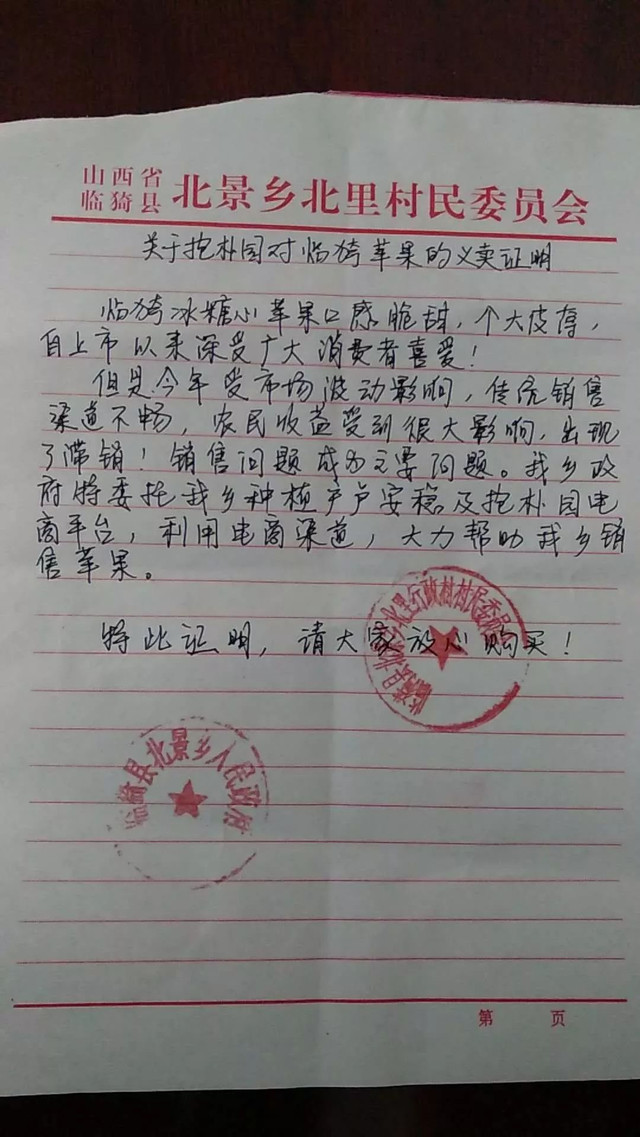 山西省
临猗县 北景乡北里村民委员会
关于抱朴园对临猗苹果的义卖证明
临猗冰糖心苹果口感脆甜，个大皮厚，
自上市以来深受广大消费者喜爱！
但是今年受市场波动影响，传统销售
渠道不畅，农民收益受到很大影响，出现
了滞销！销售问题成为主要问题。我乡政
府特委托我乡种植户卢安稳及抱朴园电
商平台，利用电商渠道，大力帮助我乡销
售苹果。
特此证明，请大家放心购买！
临猗县北景乡北里行政村村民委员会
临猗县北景乡人民政府
第 页